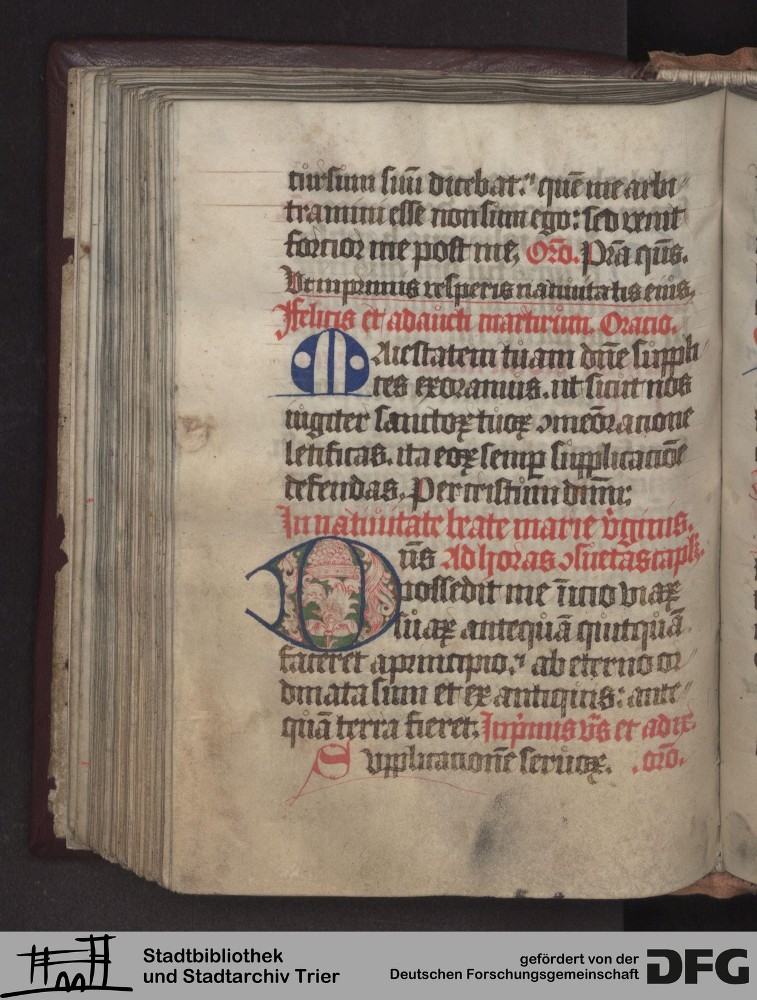 cursum suū dicebat. quē me arbi
tramini esse non sum ego: sed venit
fortior me post me, Orō. Pr̄a qūs.
Ut in primis vesperis natiuitatis eius,
Felicis et adaucti martirum. Oracio.
Maiestatem tuam dn̄e suppli
ces exoramus. ut sicut nos
iugiter sanctoꝝ tuoꝝ ꝯmeōracione
letificas. ita eoꝝ semꝑ supplicaciōe
defendas. Per cristum dn̄m:
In natiuitate beate marie v̄ginis.
Dn̄s Ad horas ꝯsuetas capl̄.
possedit me īicio viaꝝ
suaꝝ antequā quitquā
faceret a principio. ab eterno or
dinata sum et ex antiquis: ante
quā terra fieret: In p̓mis vs̄ et ad ix.
Supplicacionē seruoꝝ. orō.
Stadtbibliothek
und Stadtarchiv Trier
gefördert von der
Deutschen Forschungsgemeinschaft
DFG